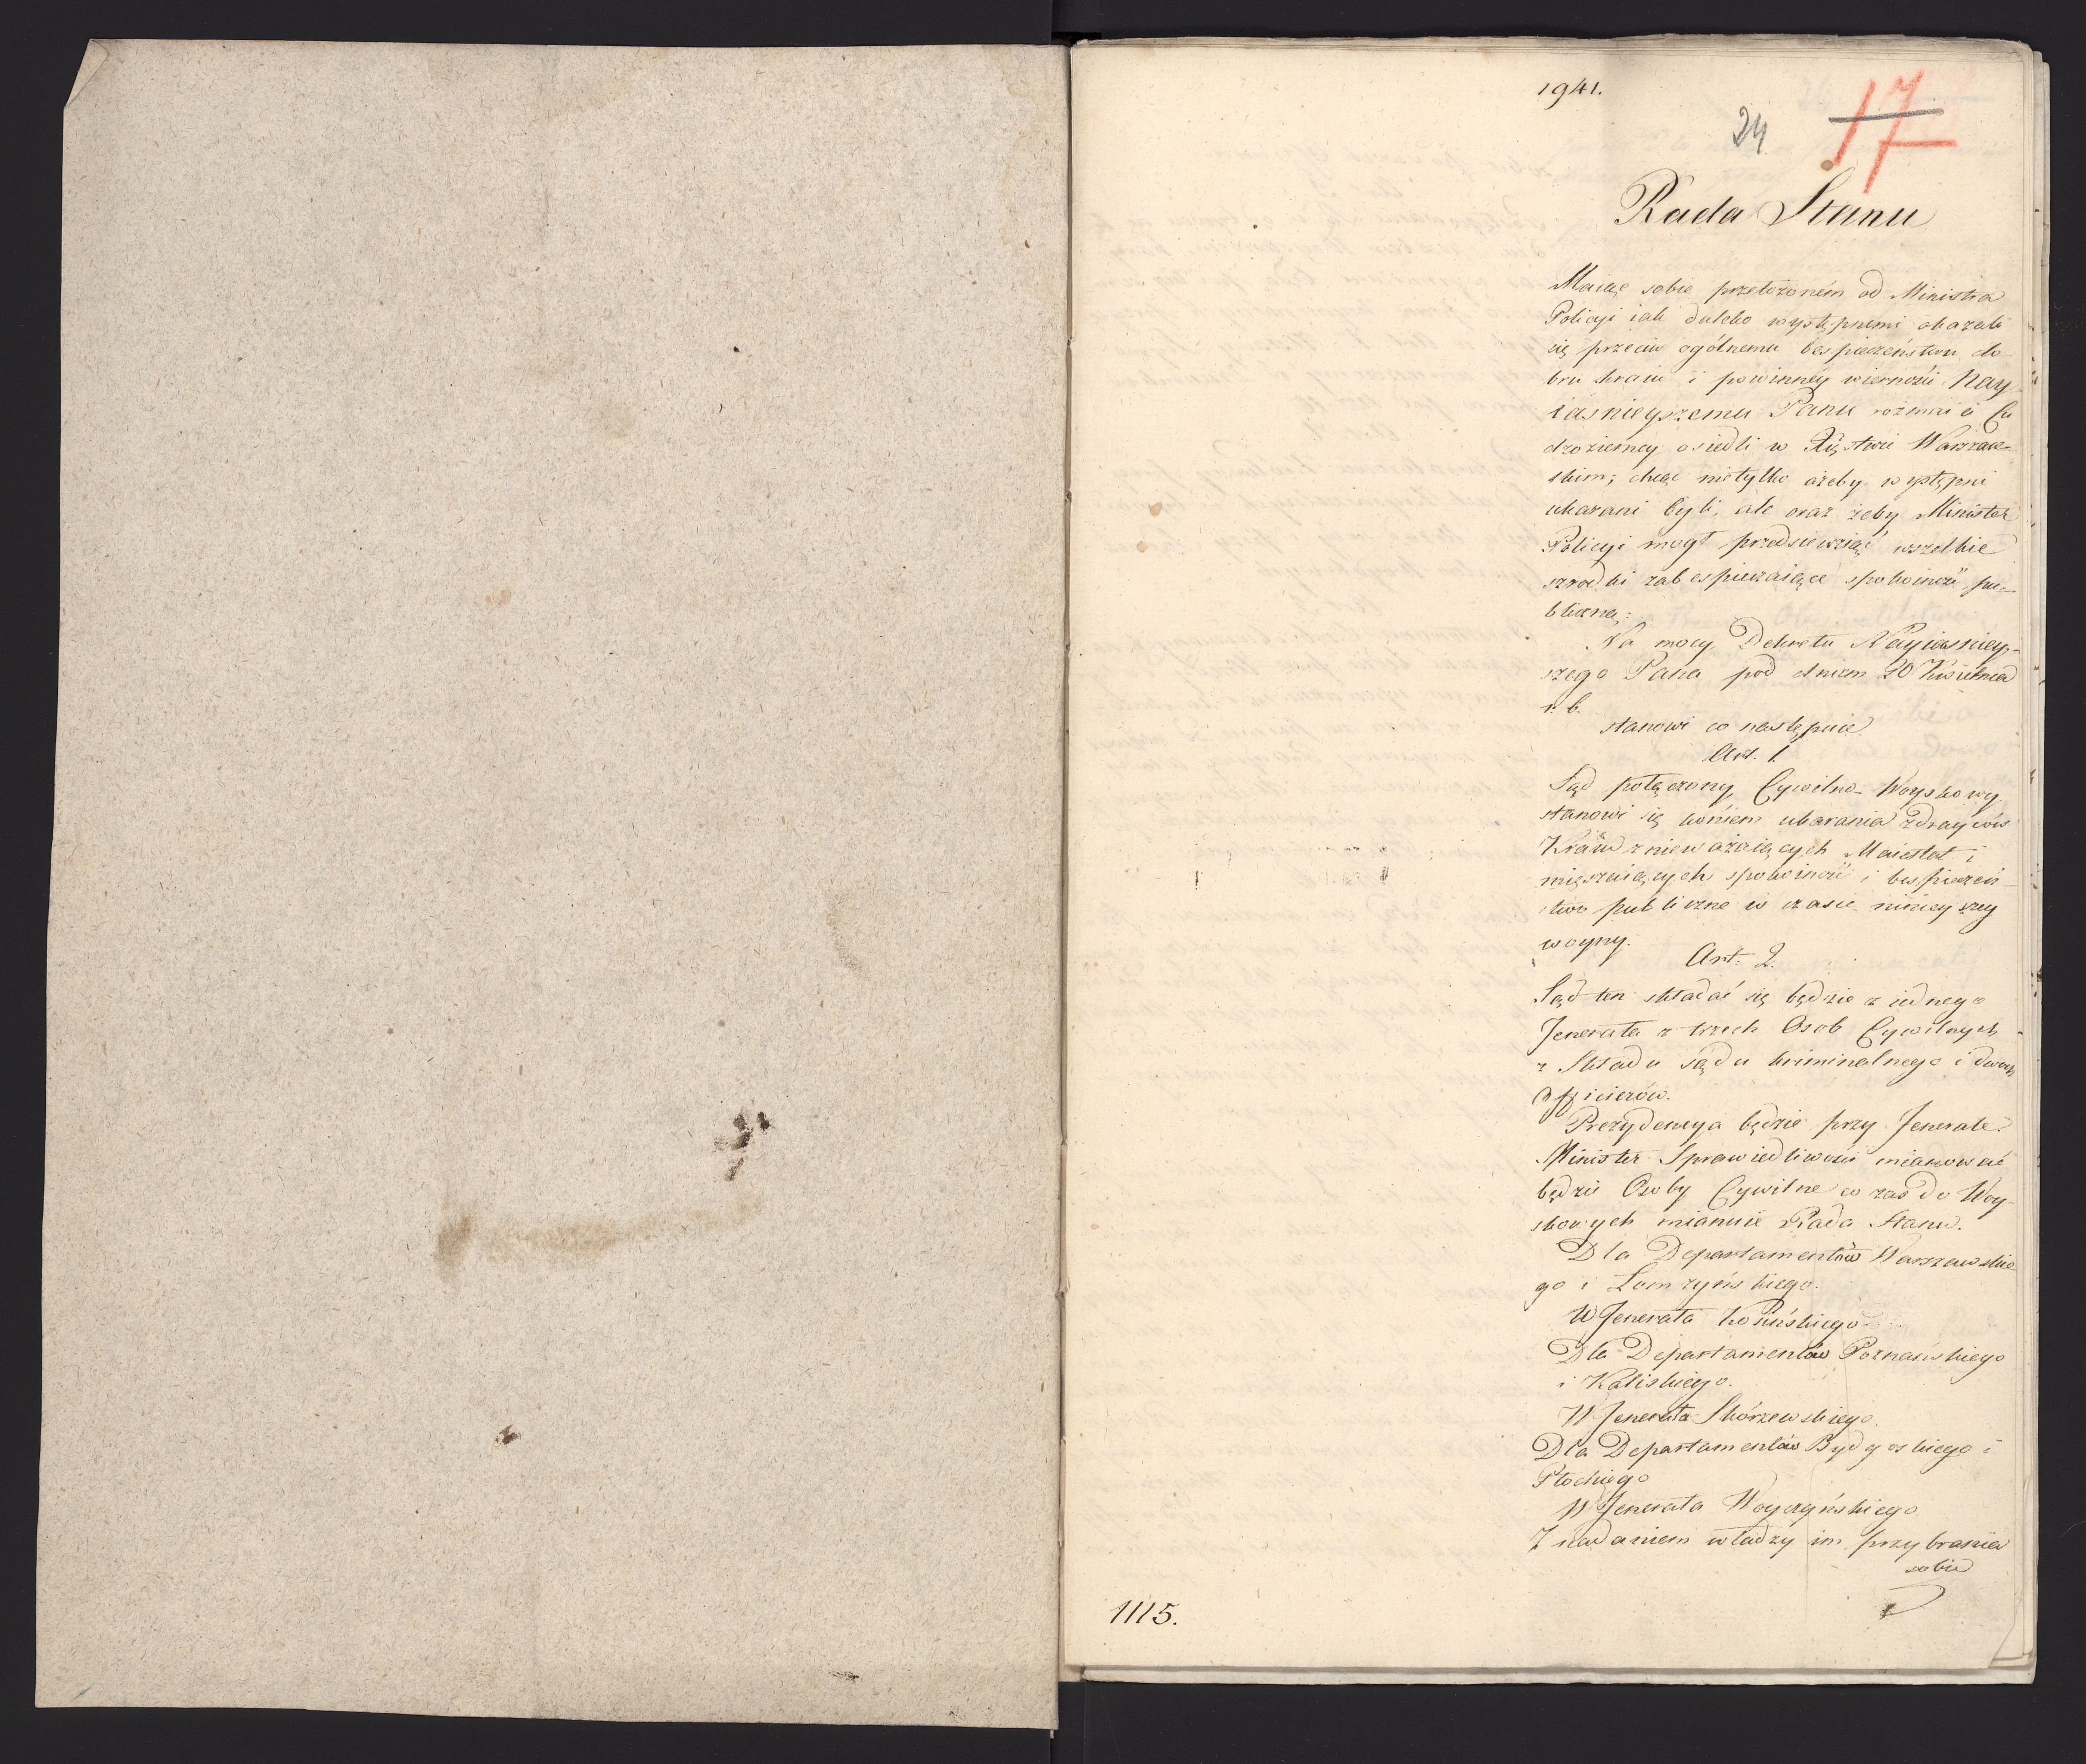 1941.
24 17
Rada Stanu
Maiąc sobie przełożoném od Ministra
Policyi iak daleko występnemi okazali
się przeciw ogólnemu bespieczeństwu do
bru kraiu i powinnéy wierności Nay
iaśnieyszemu Panu rozmaici Cu
dzoziemcy osiedli w Xięstwie Warszaw-
skim; chcąc nietylko ażeby występni
ukarani byli, ale oraz żeby Minister
Policyi mogł przedsiewziąć wszelkie
szrodki zabespieczaiące spokoiność pu-
bliczną:
Na mocy Dekretu Nayiaśniey-
szego Pana pod dniem 20 Kwietnia
r. b.
stanowi co następuie
Art. 1.
Sąd połączony Cywilno-Woyskowy
stanowi się końiem ukarania zdraycow
Kraiu znieważaiących Maiestat i
mięszaiących spokoiność i bespieczeń-
stwo publiczne w czasie ninieyszey
woyny.
Art. 2.
Sąd ten składać się będzie z iednego
Jenerała z trzech Osob Cywilnych
z Składu sądu kriminalnego i dwoch
Officierów.
Prezydencya będzie przy Jenerale.
Minister Sprawiedliwości mianować
będzie Osoby Cywilne co zaś do Woy-
skowych mianuie Rada Stanu.
Dla Departamentów Warszawskie
go i Łomzyńskiego.
W Jenerała
Dla Departamentów Poznańskiego
i Kaliskiego.
W Jenerała Skórzewskiego.
Dla Departamentów Bydgoskiego i
Płockiego
W Jenerała Woyczyńskiego
Z nadaniem władzy im przybrania
sobie
1115.